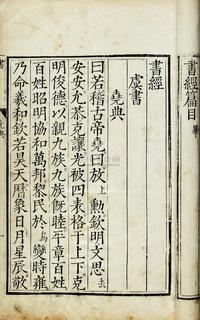 書經篇目
書經
虞書
堯典
曰若稽古帝堯曰放上勳欽明文思去
安安允恭克讓光被四表格于上下克
明俊德以親九族九族既睦平章百姓
百姓昭明協和萬邦黎民於烏變時雍
乃命羲和欽若昊天曆象日月星辰敬